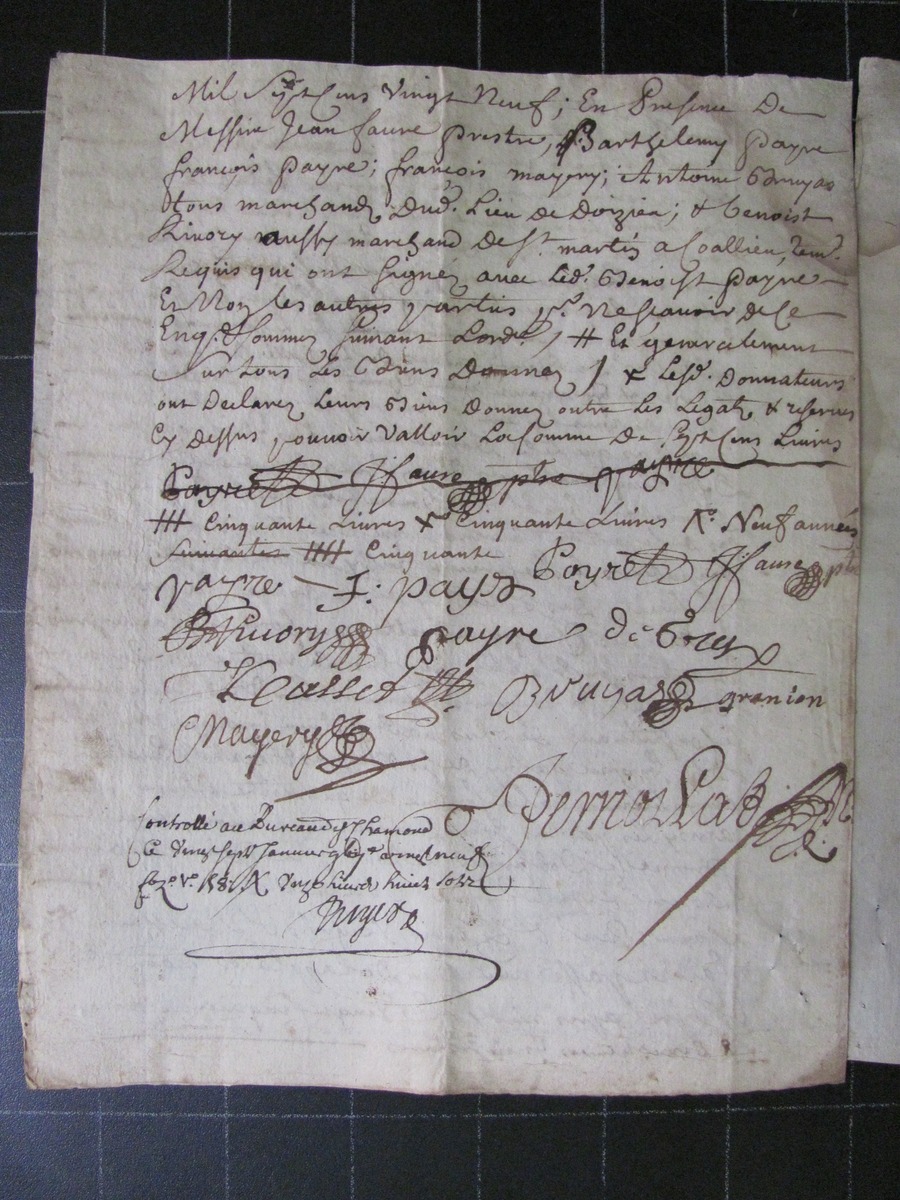 Mil Sept Cens Vingt Neuf; En Presence De
Messire Jean faure prestre, Barthelemy payre
françois payre; françois mayery; Antoine Bruyas
tous marchandz Dud. Lieu de Doizieu; & benoist
Rivory aussy marchand de St. martin a Coallieu, tem.
Requis qui ont signéz avec Led. Benoist payre
Et Non les autres parties pr. ne scavoir de ce
Enq. & sommez suivant Lord. / # Et generalement
sur tous Les Biens Donnez / x Lesd. Donnateurs
ont Declarez Leurs Biens Donnez outre Les Legatz & reserves
Cy dessus pouvoir Valloir La somme De Sept Cens Livres
Payre JFaure pbre payre
ttt Cinquante Livres x Cinquante Livres Neuf années
suivantes tttt Cinquante Payre JFaure pbre
payre F. payre
BRivory payre
Bruyas granion
Mayery
Controllé au Bureau de St Chamond
Ce Vingt sept Janvier